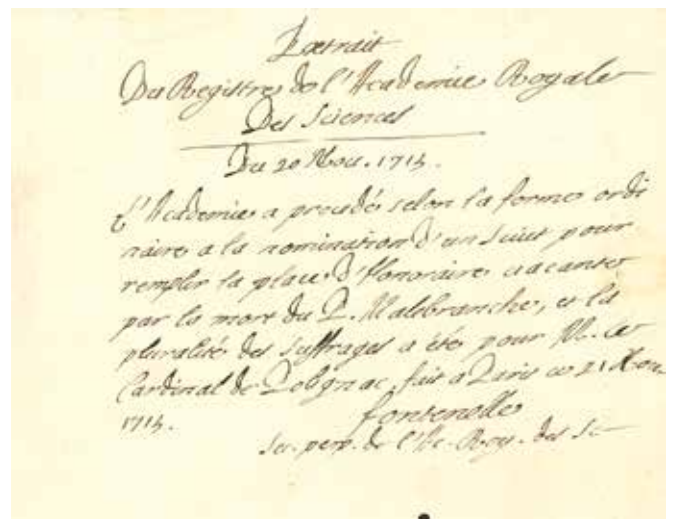 Extrait
Du Registre de l'Academie Royale
Des Sciences
Du 20 Nov. 1715.
L'Academie a procedé selon la forme ordi
naire a la nomination d'un sujet pour
remplir la place d'Honoraire vacante
par la mort du P. Malebranche, et la
pluralité des suffrages a été pour M. le
Cardinal de Polignac, fait a Paris ce 21 Nov.
1715.
fontenelle
Sec. perp. de l'Ac. Roy. des Sc